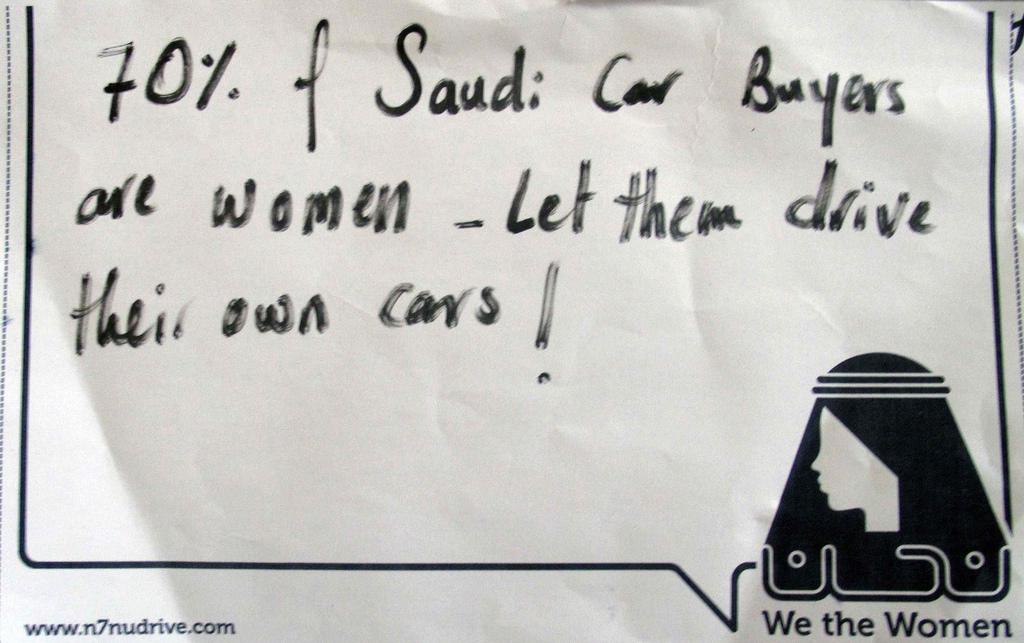 70% of Saudi Car Buyers
are women - Let them drive
their own cars!
نحن
We the Women
www.n7nudrive.com